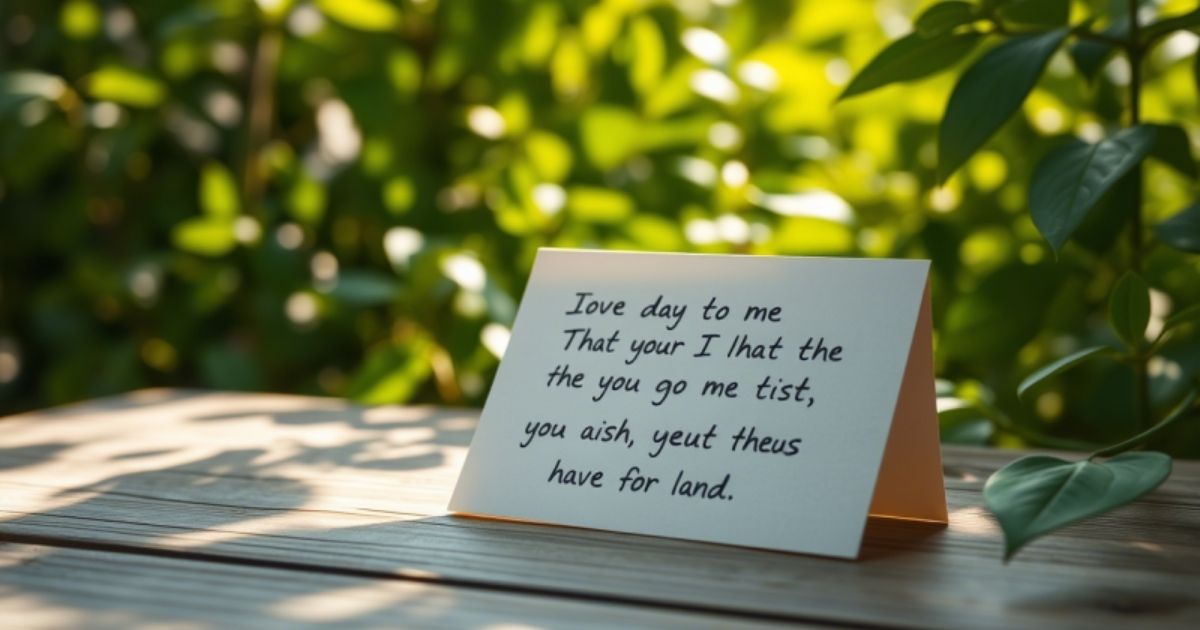 Iove day to me
That your I lhat the
the you go me tist,
you aish, yeut theus
have for land.